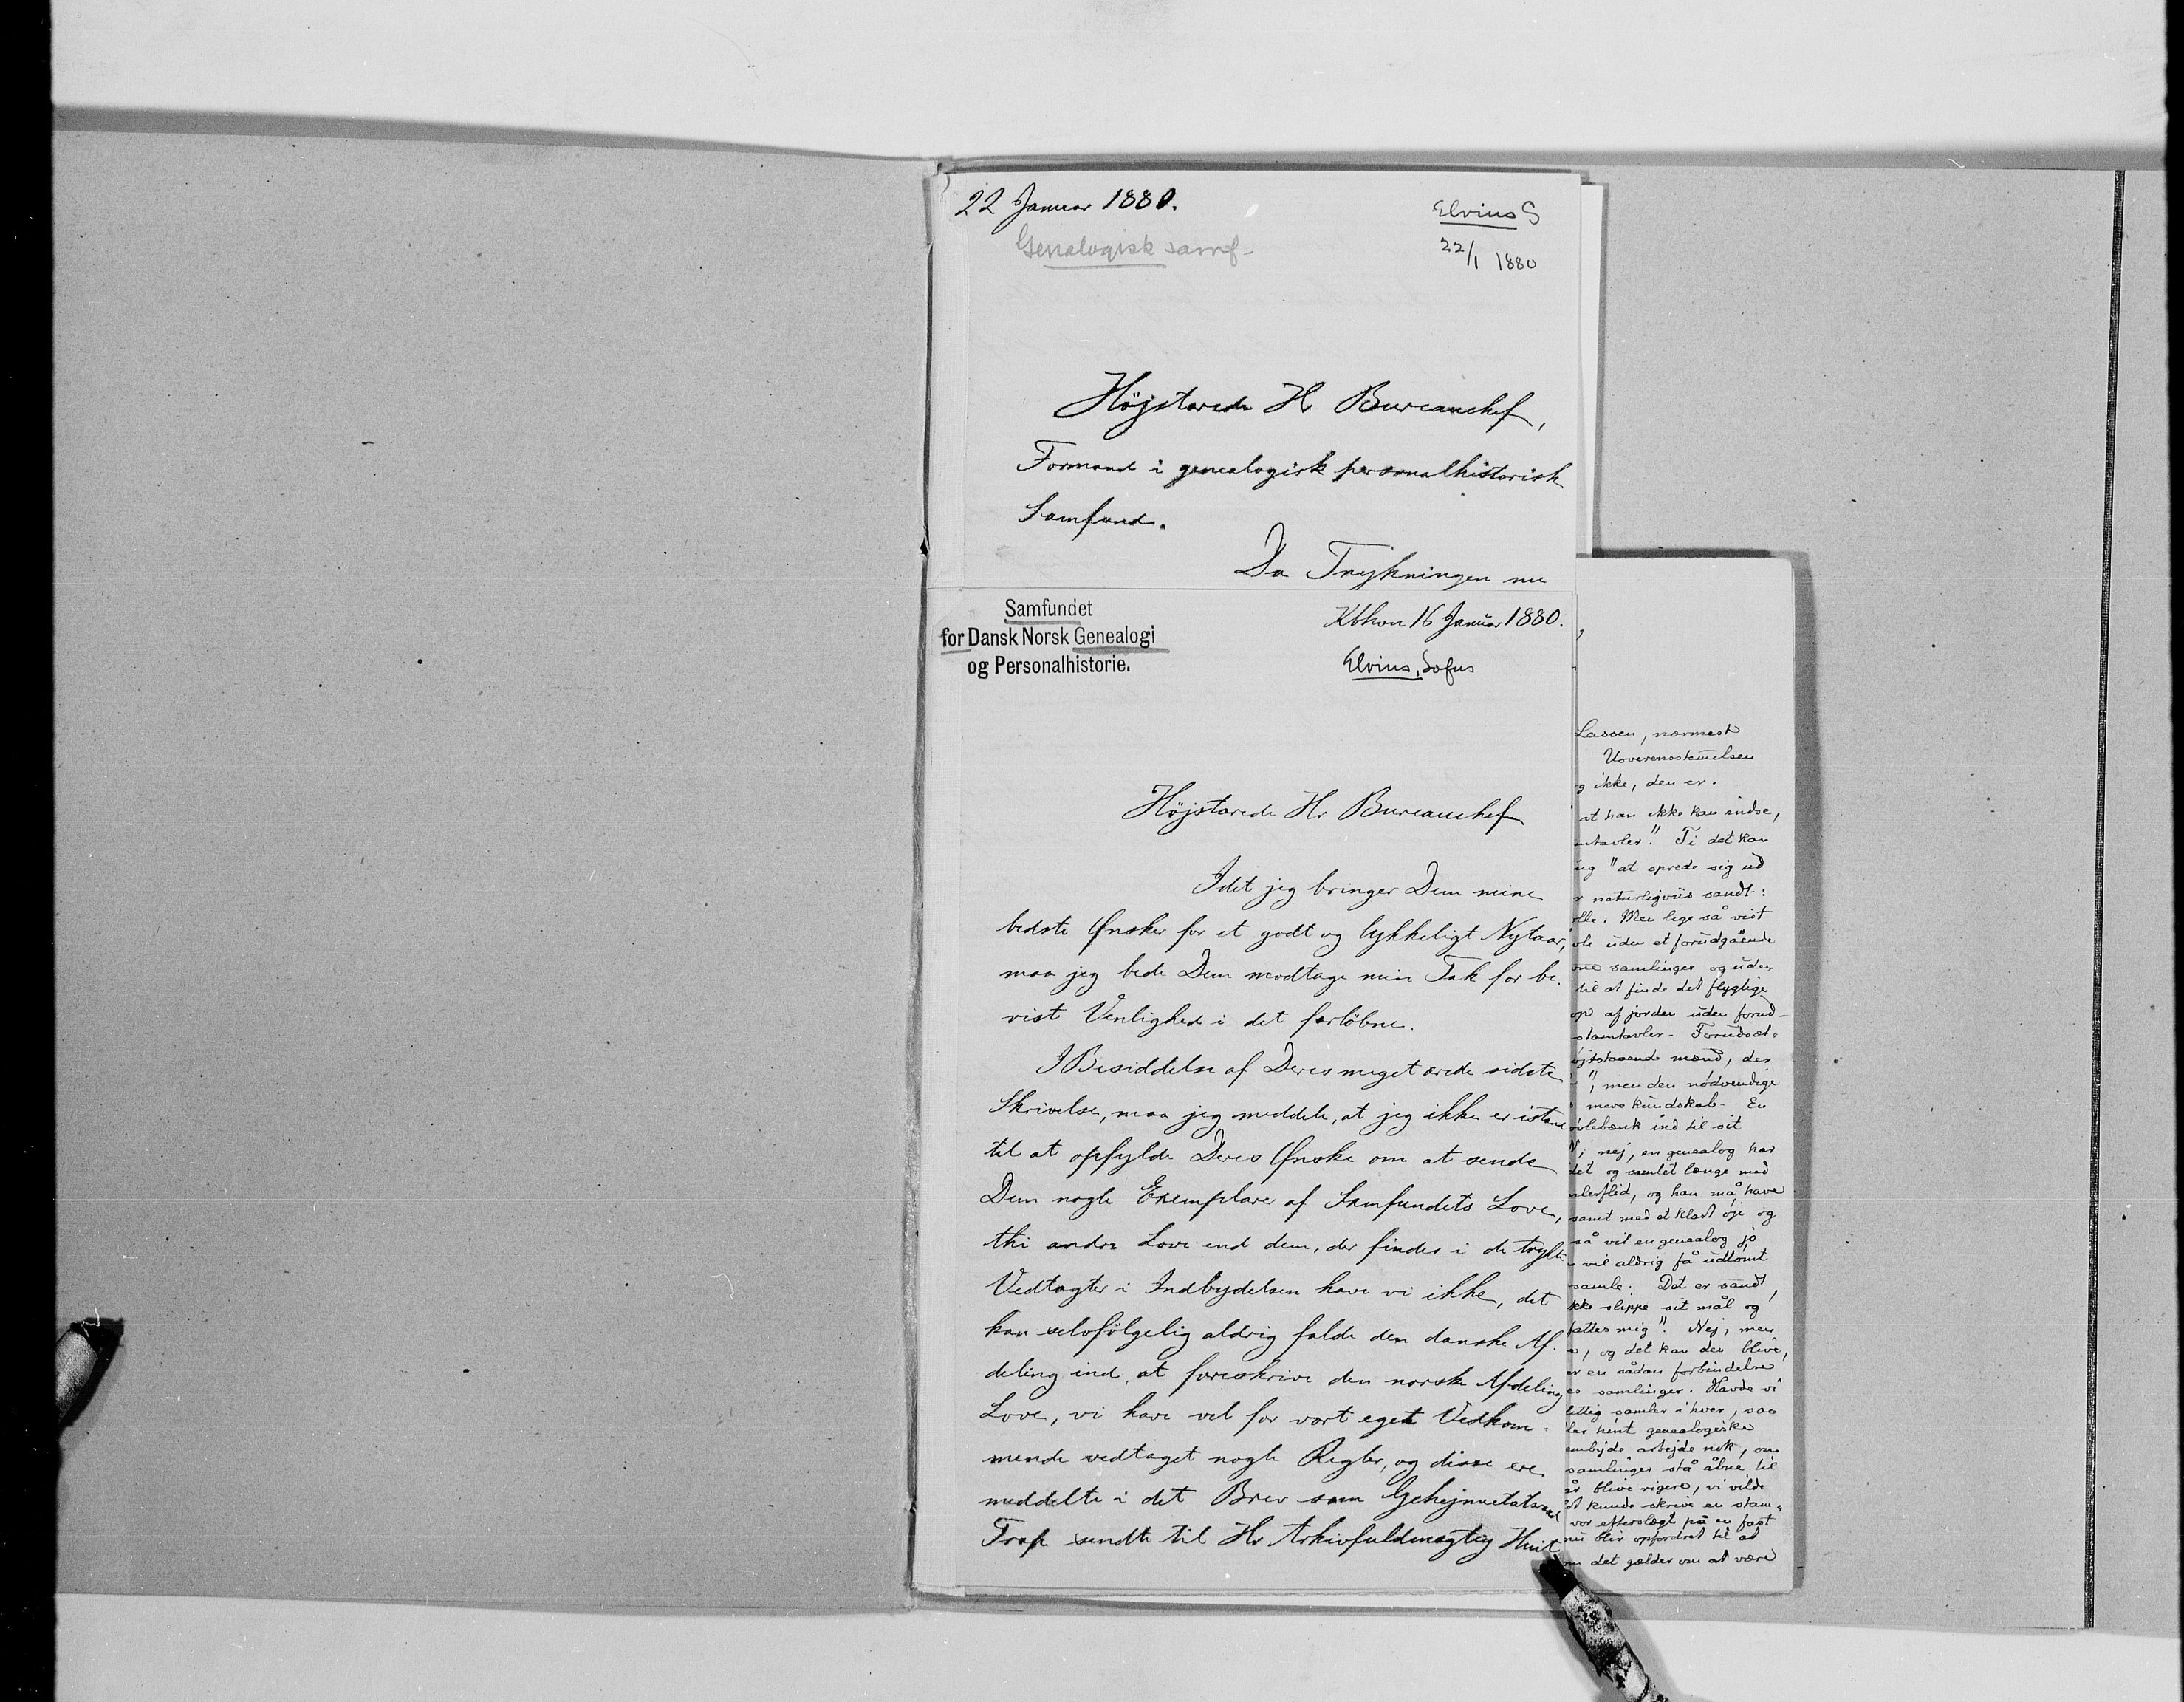 22 Januar 1880.
Elvius S
Genalogisk samf-
22/1 1880
Höjstærede Hr Bureauchef,
Formand i genealogisk personalhistorisk
Samfund.
Da Trykningen nu
Samfundet
for Dansk Norsk Genealogi
og Personalhistorie.
Kbhvn 16 Januar 1880.
Elvius, Sofus
Höjstærede Hr Bureauchef
Idet jeg bringer Dem mine
bedste Ønsker for et godt og lykkeligt Nytaar,
maa jeg bede Dem modtage min Tak for be-
vist Venlighed i det forløbne.
I Besiddelse af Deres meget ærede sidste
Skrivelse, maa jeg meddele, at jeg ikke er istand
til at opfylde Deres Ønske om at sende
Dem nogle Exemplarer af Samfundets Love,
thi andre Love end dem, der findes i de trykte
Vedtægter i Indbydelsen have vi ikke, det
kan selvfölgelig aldrig falde den danske Af-
deling ind, at foreskrive den norske Afdeling
Love, vi have vel for vort eget Vedkom-
mende vedtaget nogle Regler, og disse ere
meddelte i det Brev som Gehejmeetatsraad
Trap sendte til Hr Arkivfuldmægtig Huit
Lassen, nærmest
Uoverensstemmelsen
g ikke, den er.
at han ikke kan indse,
mtavler". Ti det kan
ug "at sprede sig ud
r naturligviis sandt:
olle. Men lige så vist
vle uden et forudgående
vne samlinger og uden
til at finde det flygtige
op af jorden uden forud-
stamtavler- Forudsæt-
öjtstaaende mænd, der
", men den nödvendige
mere kundskab- En
övlebænk ind til sit
N; nej, en genealog har
det og samlet længe med
mlerflid, og han må have
samt med et klart öje og
så vil en genealog jo
vil aldrig få udtömt
samle. Det er sandt,
kke slippe sit mål og
fattes mig". Nej, men
e, og det kan den blive,
er en sådan forbindelse
es samlinger. Havde vi
littig samler i hver, saa
ler hint genealogiske
embyde arbejde nok, om
samlinger stå åbne til
år blive rigere, vi vilde
dt kunde skrive en stam-
vor efterslægt på en fast
nu blir opfordret til at
m det gælder om at være